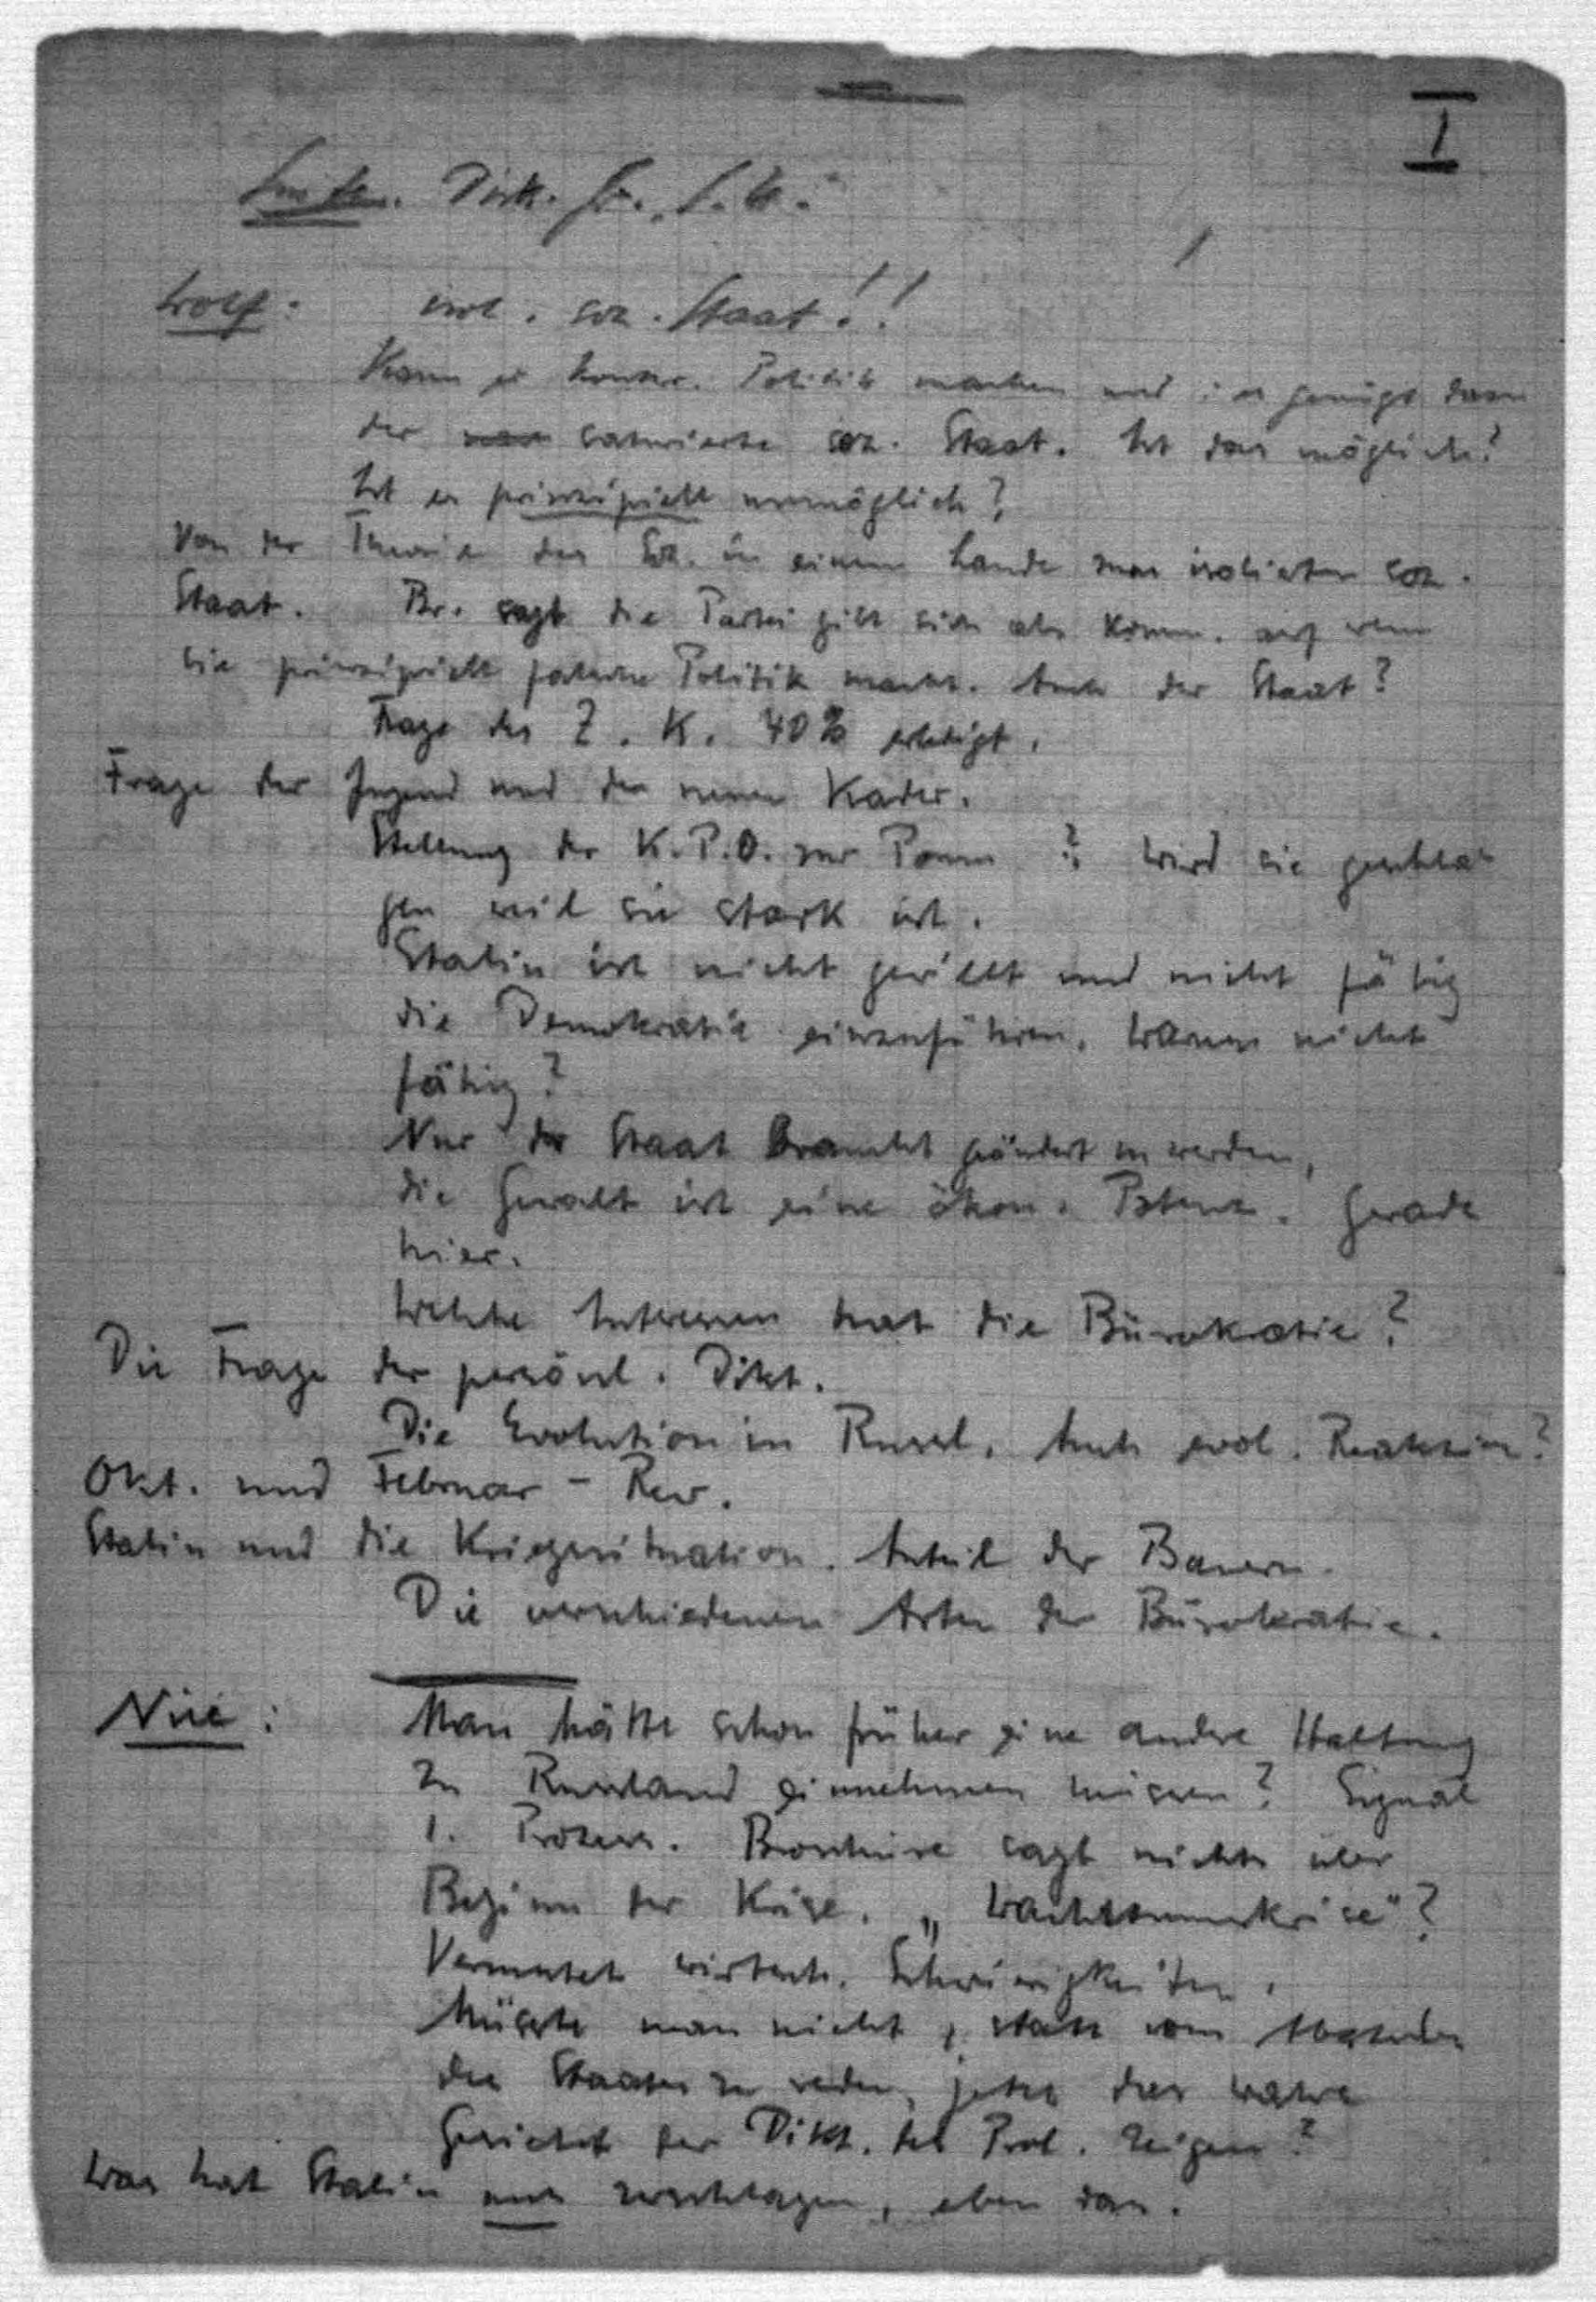 I
Disk.
Wolf: isol. soz. Staat!!
Kann er konter. Politik machen und
der saturierte soz. Staat. Ist das möglich?
Ist er prinzipiell unmöglich?
Von der Theorie des Soz. in einem Lande zum isolierten soz.
Staat. Br. sagt die Partei gibt sich als Komm. auf wenn
sie prinzipiell falsche Politik macht. Auch der Staat?
Frage des Z. K. 40% erledigt.
Frage der Jugend und der neuen Kader.
Stellung der K.P.O. zur Poum? Wird sie geschla-
gen weil sie stark ist.
Stalin ist nicht gewillt und nicht fähig
die Demokratie einzuführen. Warum nicht
fähig?
Nur der Staat braucht geändert zu werden,
die Gewalt ist eine ökon. Potenz. Gerade
hier.
Welche Interessen hat die Bürokratie?
Die Frage der persönl. Dikt.
Die Evolution in Russl. Auch evol. Reaktion?
Okt. und Februar - Rev.
Stalin und die Kriegssituation. Anteil der Bauern.
Die verschiedenen Arten der Bürokratie.
Man hätte schon früher eine andre Haltung
zu Russland einnehmen müssen? Signal
1. Prozess. Broschüre sagt nichts über
Beginn der Krise. „Wachstumskrise"?
Vermutet wirtsch. Schwierigkeiten.
Müsste man nicht, statt vom Absterben
des Staates zu reden, jetzt das wahre
Gesicht der Dikt. des Prol. zeigen?
Was hat Stalin uns zerschlagen, eben das.